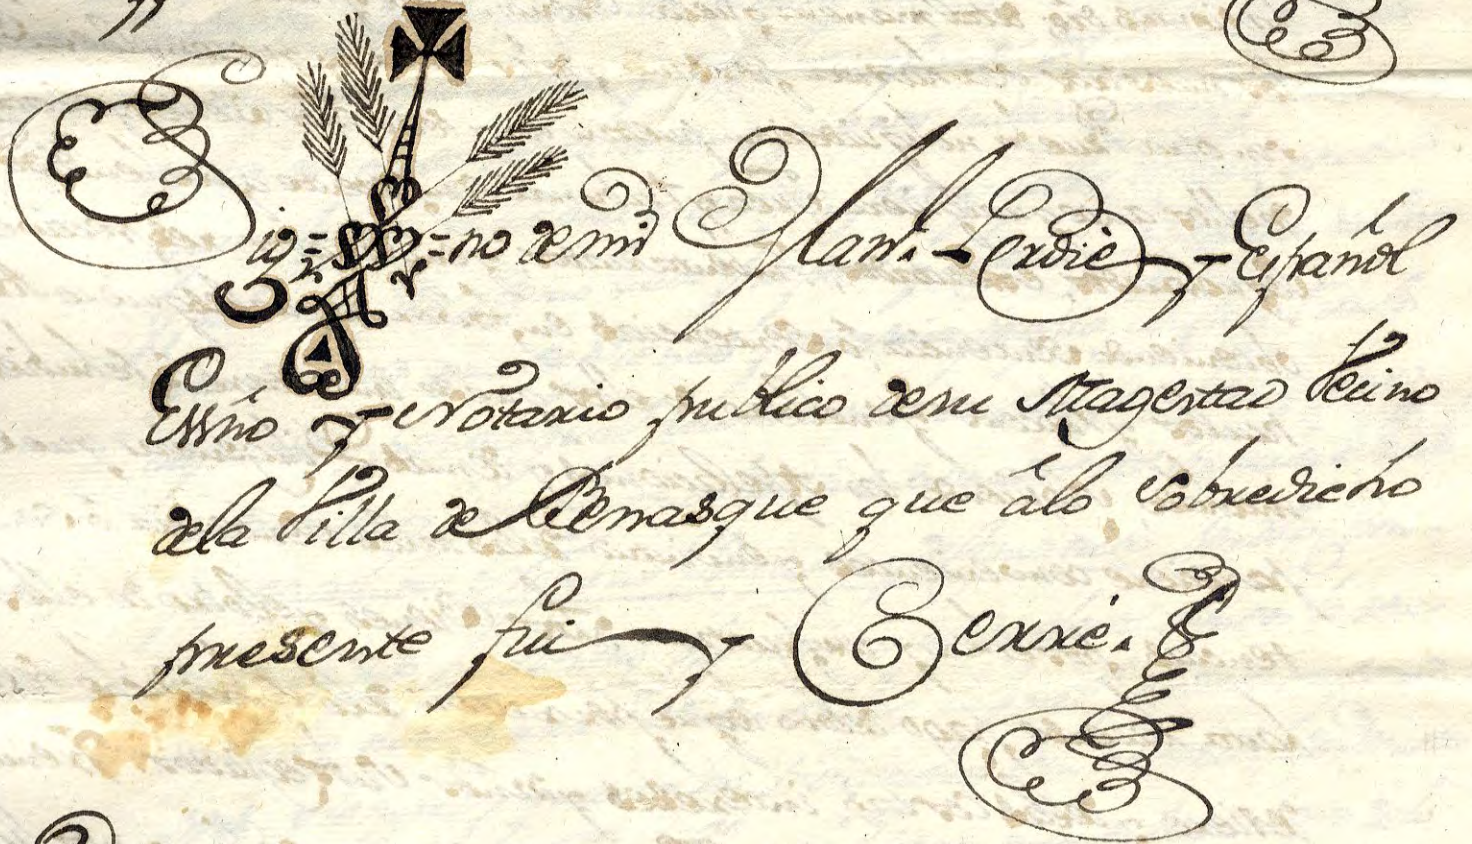 Sig=no de mi Franco. Ferdiè y Español
Essno y Notario publico de su Magestad Vecino
dela Villa de Benasque que âlo sobredicho
presente fui y Cerrè.